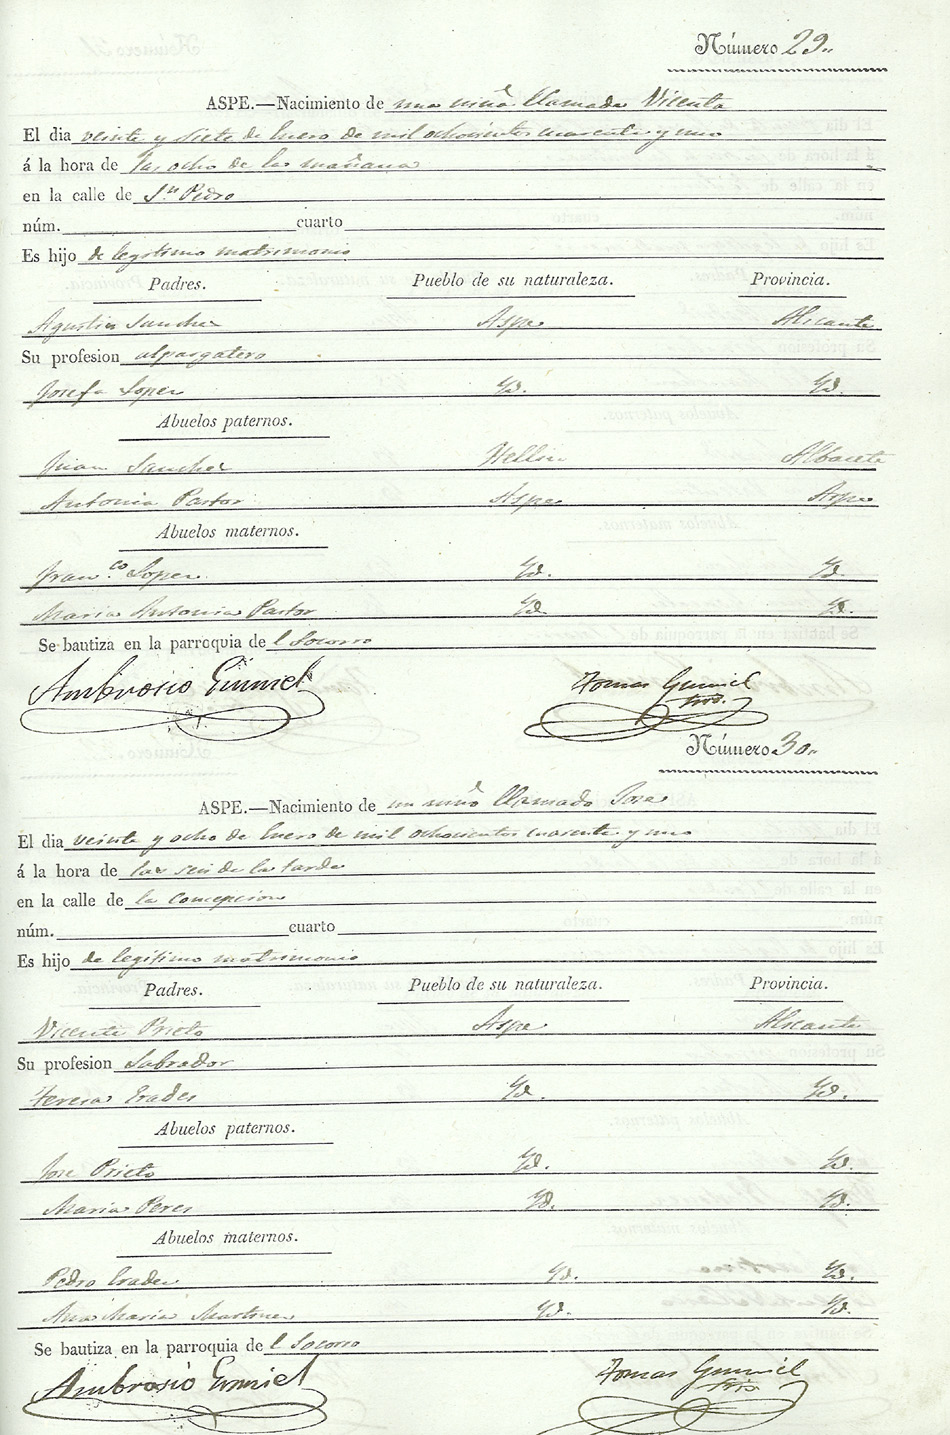 Número 29.
ASPE.—Nacimiento de una niña llamada Vicenta
El dia veinte y siete de Enero de mil ochocientos cuarenta y uno
á la hora de las ocho de la mañana
en la calle de Sn Pedro
núm. cuarto
Es hijo de legitimo matrimonio
Padres. Pueblo de su naturaleza. Provincia.
Agustin Sanchez Aspe Alicante
Su profesion alpargatero
Josefa Soper Yd. Yd.
Abuelos paternos.
Juan Sanchez Hellin Albacete
Antonia Pastor Aspe Aspe
Abuelos maternos.
Fran.co Soper Yd. Yd.
Maria Antonia Pastor Yd. Yd.
Se bautiza en la parroquia de l Socorro
Ambrosio Tomas
Número 30.
ASPE.—Nacimiento de un niño llamado Jose
El dia veinte y ocho de Enero de mil ochocientos cuarenta y uno
á la hora de las seis de la tarde
en la calle de la Concepcion
núm. cuarto
Es hijo de legitimo matrimonio
Padres. Pueblo de su naturaleza. Provincia.
Vicente Prieto Aspe Alicante
Su profesion Labrador
Teresa Erades Yd. Yd.
Abuelos paternos.
Jose Prieto Yd. Yd.
Maria Peres Yd. Yd.
Abuelos maternos.
Pedro Erades Yd. Yd.
Ana Maria Martinez Yd. Yd.
Se bautiza en la parroquia de l Socorro
Ambrosio Tomas